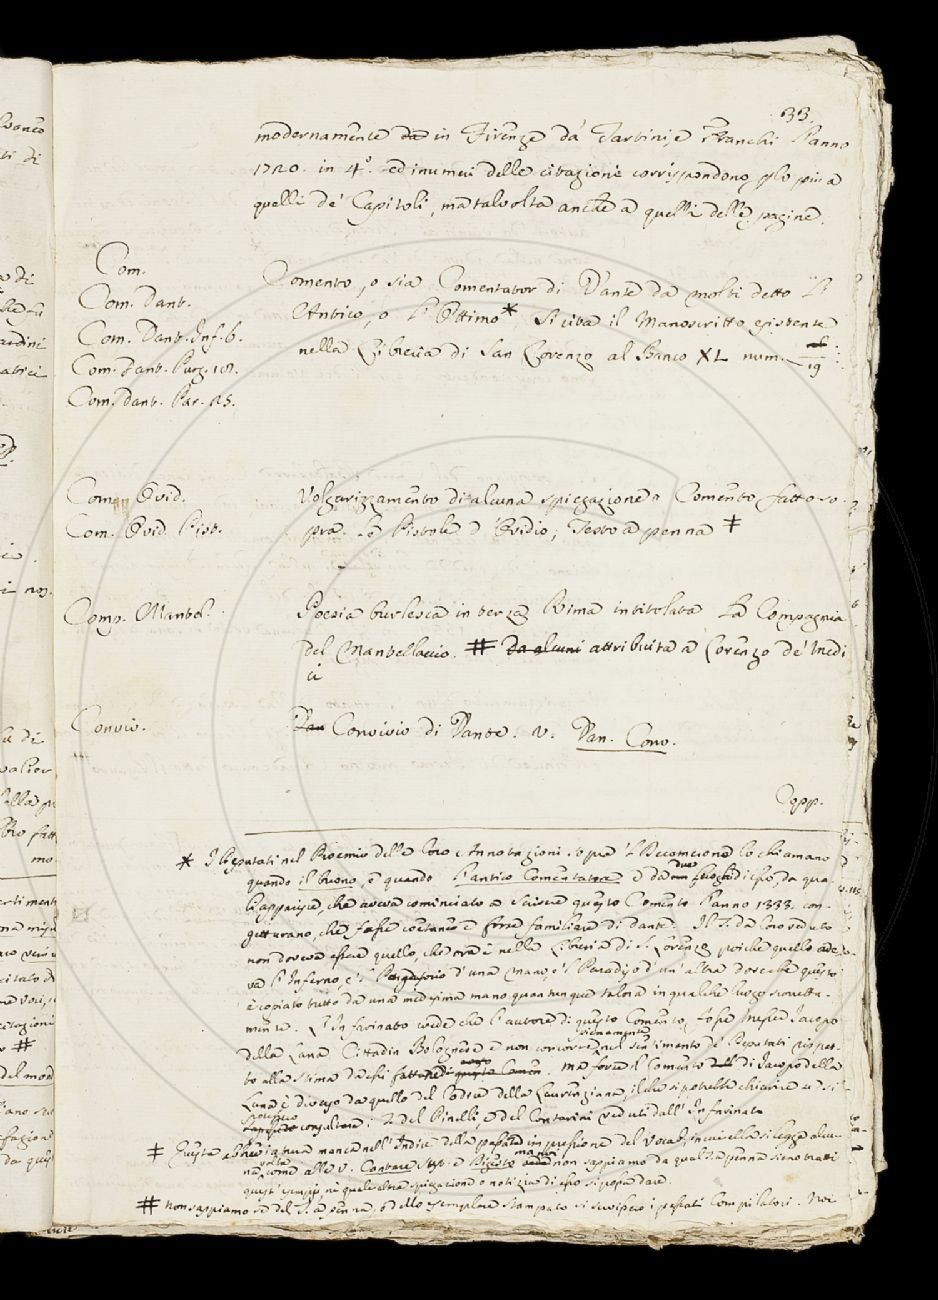 33.
modernamente in Firenze da' Tartini, e Franchi l'anno
1720. in 4°. ed i numeri delle citazioni corrispondono plo piu a
quelli de' Capitoli, ma talvolta anche a quelli delle pagine.
Com.
Com. Dant.
Com. Dant. Inf. 6.
Com. Dant. Purg. 18.
Com. Dant. Par. 25.
Comento, o sia Comentator di Dante da molti detto L'
Antico, o l'Ottimo * Si cita il Manoscritto esistente
nella Libreria di San Lorenzo al Banco XL num. 19
Com. Ovid.
Com. Ovid. Pist.
Volgarizzamento di alcuna spiegazione o Comento fatto so
pra le Pistole d'Ovidio; Testo a penna ‡
Comp. Mantel.
Poesia burlesca in terza Rima intitolata La Compagnia
del Mantellaccio. # da alcuni attribuita a Lorenzo de' Medi
ci
Conviv.
Dan Convivio di Dante. v. Dan. Conv.
Copp.
* I Deputati nel Proemio delle loro Annotazioni sopra 'l Decamerone lo chiamano
quando il buono, e quando l'antico Comentatore e da due di esso, da qua
li apparisce, che aveva cominciato a scriver questo Comento l'anno 1333. con-
getturano, che fosse coetaneo e forse familiare di Dante. Il T. da loro veduto
non doveva essere quello, che ora è nella Libreria di S. Lorenzo poiche quello
va l'Inferno, e 'l Purgatorio d'una mano e 'l Paradiso d'un'altra dove che questo
è copiato tutto da una medesima mano quantunque talora in qualche luogo scorretta-
mente. L'Infarinato crede che l'autore di questo Comento, fosse Messer Jacopo
della Lana Cittadin Bolognese e non concorre pienamente nel sentimento de' Deputati rispet-
to alla stima da essi fattane. ma forse il Comento di Jacopo della
Lana è diverso da quello del Codice della Laurenziana, il che si potrebbe chiarire
consultare i T. del Pinelli, e del Contarini veduti dall'Infarinato
‡ Questa abbreviatura manca nell'Indice della passata impressione del Vocab., in cui ella si legge alcu-
na volta come alle v. Cantare non sappiamo da qual T. a penna sieno tratti
questi esempj, ne quale altra spiegazione o notizia di esso si possa dare.
# non sappiamo se del T. a penna, o dello esemplare stampato si servissero i passati Compilatori. Noi